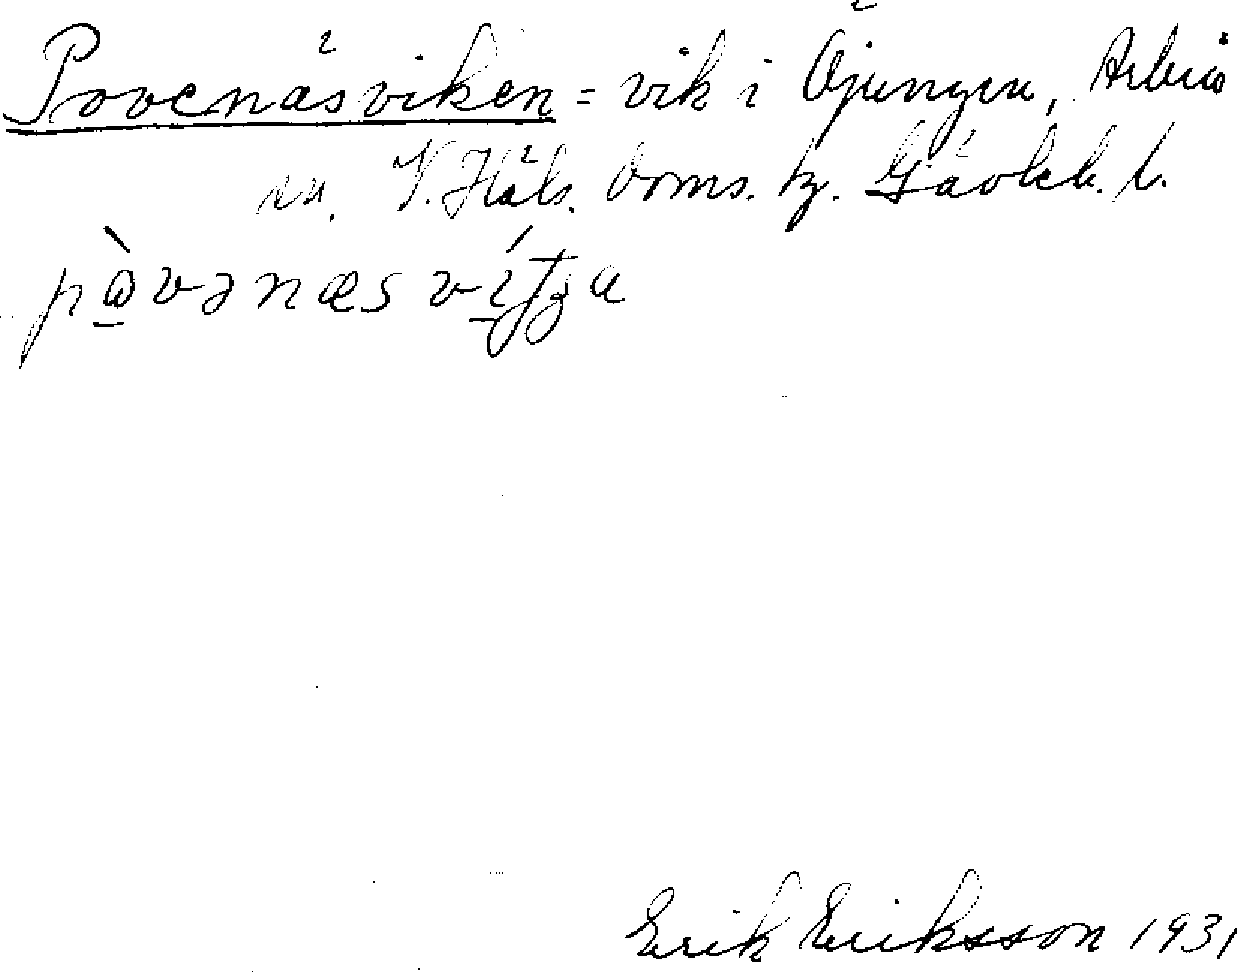 Povenäsviken = vik i Öjungen, Arbrå
sn. V. Häls. doms. tg. Gävleb. l.
pàvənæsvítʒa
Erik Eriksson 1931